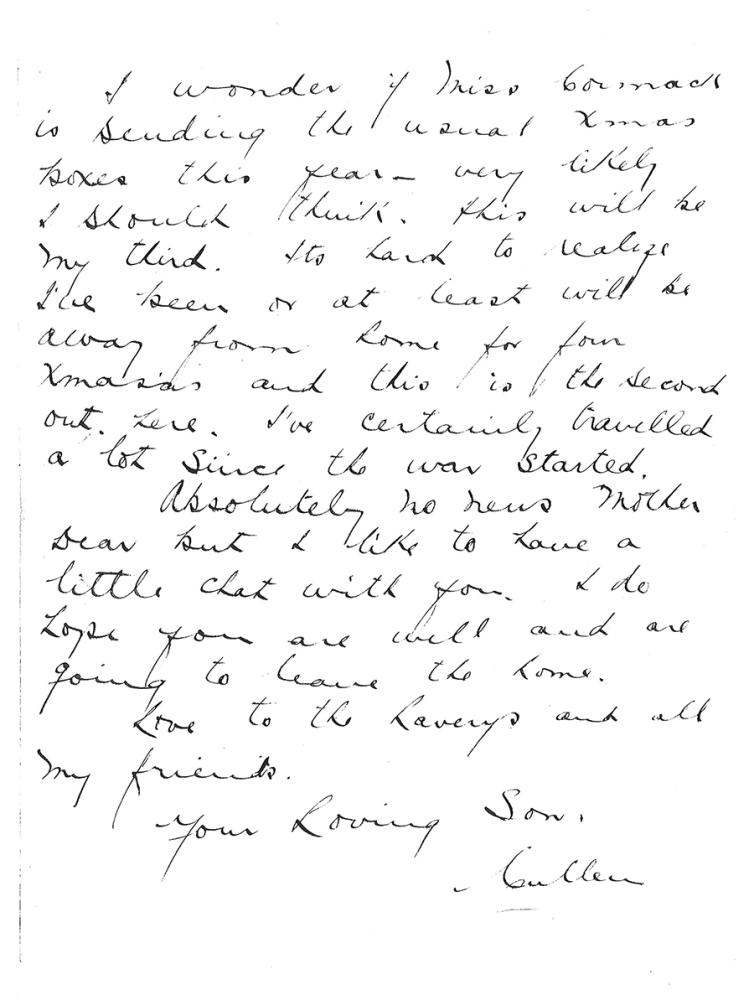 I wonder if Miss Cormack
is sending the usual Xmas
boxes this year – very likely
I should think. This will be
my third. Its hard to realize
I've been or at least will be
away from home for four
Xmas'as and this is the second
out here. I've certainly travelled
a lot since the war started.
Absolutely no news Mother
Dear but I like to have a
little chat with you. I do
hope you are well and are
going to leave the home.
Love to the Laverys and all
my friends.
Your Loving Son.
Cullen